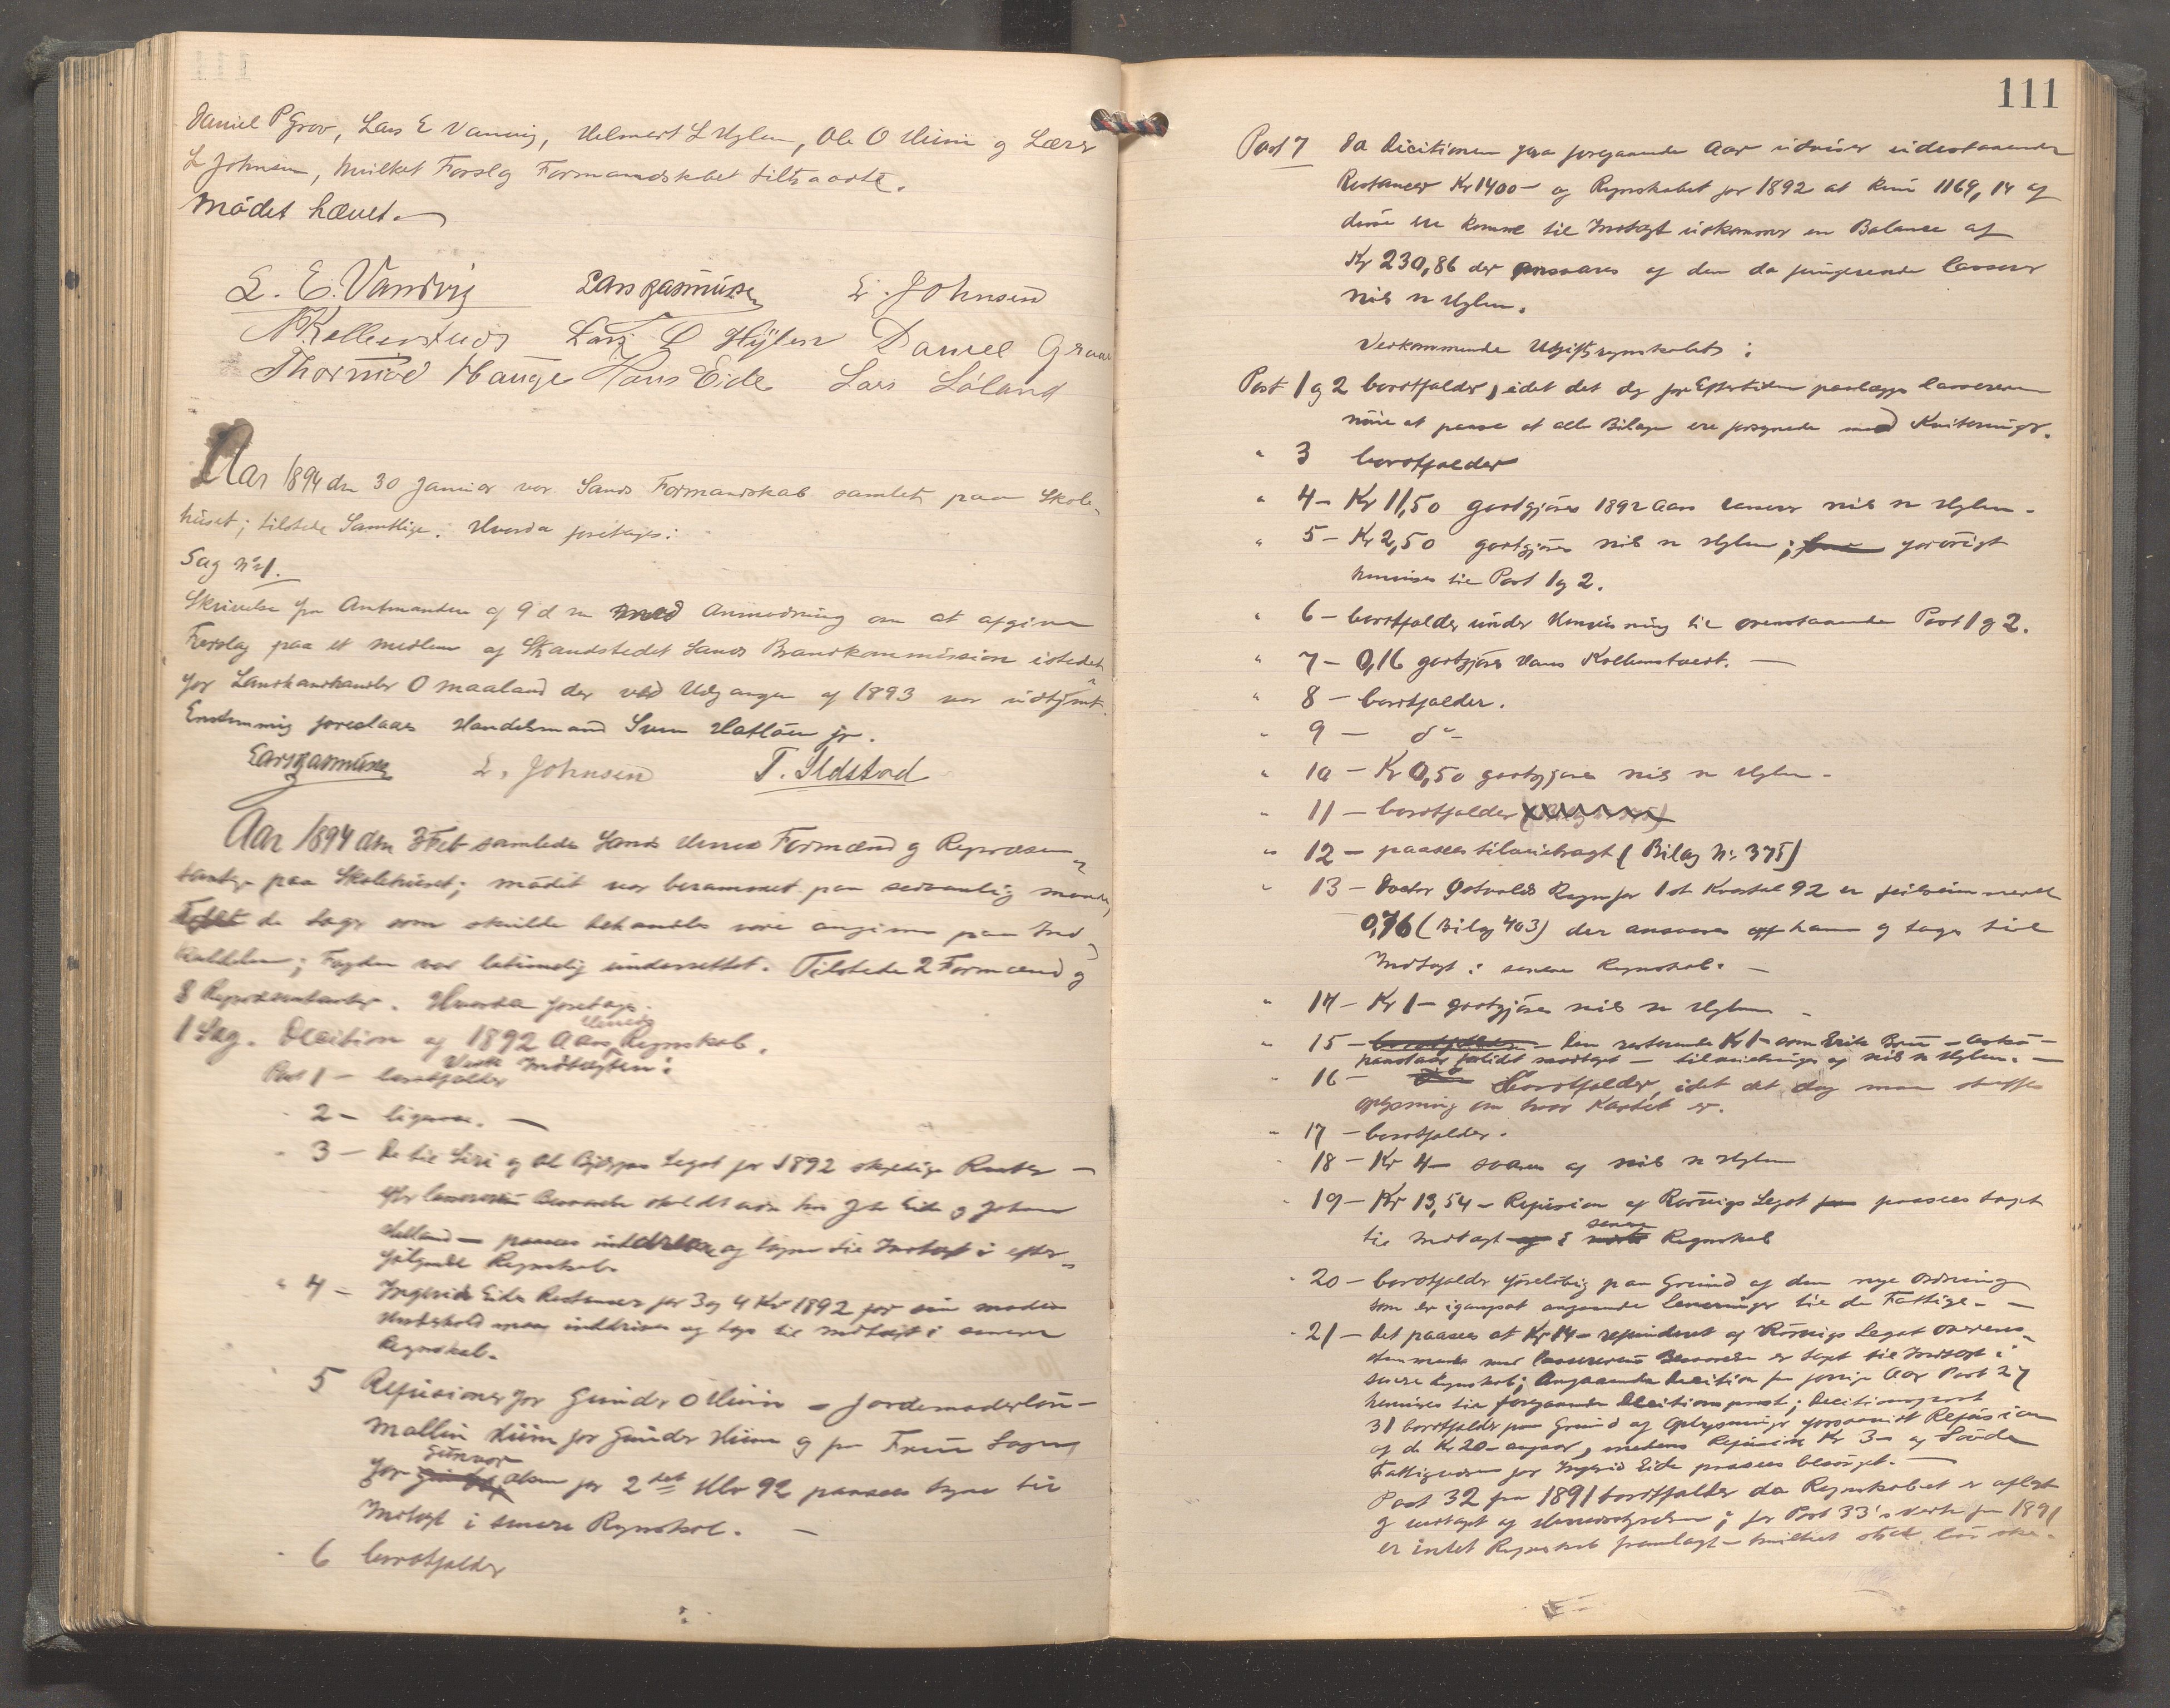 Daniel P Grov, Lars E Vanvig, Helmert L Hylen, Ole O Hiim og Lærer
L Johnsen, hvilket Forslg Formandskabet tiltraadte.
Mødet hævet.
L. E. Vandvig Lars Rasmusen L. Johnsen
N Kollenstvedt Lars L Hÿlen Daniel Graav
Thormod Hauge Hans Eide Lars Løland
Aar 1894 den 30 Januar var Sands Formandskab samlet paa Skole-
huset; tilstede Samtlige. Hvorda foretages:
Sag No 1.
Skrivelse fra Amtmanden af 9 d m med Anmodning om at afgive
Forslag paa et medlem af Strandstedet Sands Brandkommission istedet
for Landhandler O Maaland der ved Udgangen af 1893 var udtjent.
Enstemmig foreslaaes Handelsmand Sven Hatløen jr.
Lars Rasmusen L. Johnsen T. Ildstad
Aar 1894 den 3 Feb samledes Sands Herreds Formænd og Repræsen-
tanter paa Skolehuset; mødet var berammet paa sedvanlig maade,
de Sager som skulde behandles vare angivne paa Ind-
kaldelsen; Fogden var betimelig underrettet. Tilstede 2 Formænd og
8 Repræsentanter. Hvorda foretages.
1 Sag. Decition af 1892 Aars Herreds Regnskab.
Vedk Indtægten:
Post 1 - bortfalder
" 2 - ligesaa. -
" 3 - De til Siri og Ol Bjelgjas Legat for 1892 skyldige Renter -
efter Casserens Besvarelse skyldt hos Johs Eide og Johan
Helland - paasees inddreven og tages til Indtægt i efter-
følgende Regnskab.
" 4 - Ingerid Eides Restancer for 3 og 4 Kv 1892 for sin moders
Underhold maa inddrives og tages til Indtægt i senere
Regnskab.
5 Refusioner for Gunder O Hiim - Jordemoderløn -
Mallin Hiim for Gunder Hiim og fra Frue Sogn
for Gunvor Olsen for 2det Hlv 92 paasees tagne til
Indtægt i senere Regnskab. -
" 6 bortfalder
111
Post 7 Da Decitionen for foregaaende Aar udviser udestaaende
Restancer Kr 1400 - og Regnskabet for 1892 at kun 1169,14 af
disse ere komne til Indtægt udkommer en Balance af
Kr 230,86 der ansvares af den da fungerende Casserer
Nils N Hylen.
Vedkommende Udgiftsregnskabet:
Post 1 og 2 bortfalder, idet det dog for Eftertiden paalægges Cassereren
nøie at paase at alle Bilage ere forsynede med Kvitteringer.
" 3 bortfalder
" 4 - Kr 11,50 godtgjøres 1892 Aars Casserer Nils N Hylen -
" 5 - Kr 2,50 godtgjøres Nils N Hylen; forøvrigt
henvises til Post 1 og 2.
" 6 - bortfalder under Henvisning til ovenstaaende Post 1 og 2.
" 7 - 0,16 godtgjøres Hans Kollenstvedt. -
" 8 - bortfalder.
" 9 - do -
" 10 - Kr 0,50 godtgjøres Nils N Hylen -
" 11 - bortfalder
" 12 - paasees tilveiebragt (Bilag No 375)
" 13 - Doctor Østvolds Regn for 1st Kvartal 92 er feilsummeret
0,76 (Bilag 403) der ansvares af ham og tages til
Indtægt i senere Regnskab. -
" 14 - Kr 1 - godtgjøres Nils N Hylen -
" 15 - Den resterende Kr 1 - som Erik Brue -
paastaar forlidt modtaget - tilveiebringes af Nils N Hylen. -
" 16 - bortfalder, idet det dog maa skaffes
oplysning om hvor Kartet er.
" 17 - bortfalder.
" 18 - Kr 4 - svares af Nils N Hylen
" 19 - Kr 13,54 - Refusion af Rønigs Legat paasees taget
til Indtægt i senere Regnskab
" 20 - bortfalder foreløbig paa Grund af den nye Ordning
som er igangsat angaaende Leveringer til de Fattige. -
" 21 - Det paasees at Kr 14 - refunderet af Rønigs Legat overens-
stemmende med Cassererens Besvarelse er taget til Indtægt i
senere Regnskab; Angaaende Decition for forrige Aar Post 27
henvises til foregaaende Decitionspost; Decitionspost
31 bortfalder paa Grund af Oplysninger forsaavidt Refusion
af de Kr 20 - angaar, medens Refusion Kr 3 - af Søvde
Fattigvæsen for Ingerid Eide paasees besørget. -
Post 32 fra 1891 bortfalder da Regnskabet er aflagt
og vedtaget af Herredsstyrelsen; for Post 33's vedk. fra 1891
er intet Regnskab fremlagt - hvilket skal bør ske.